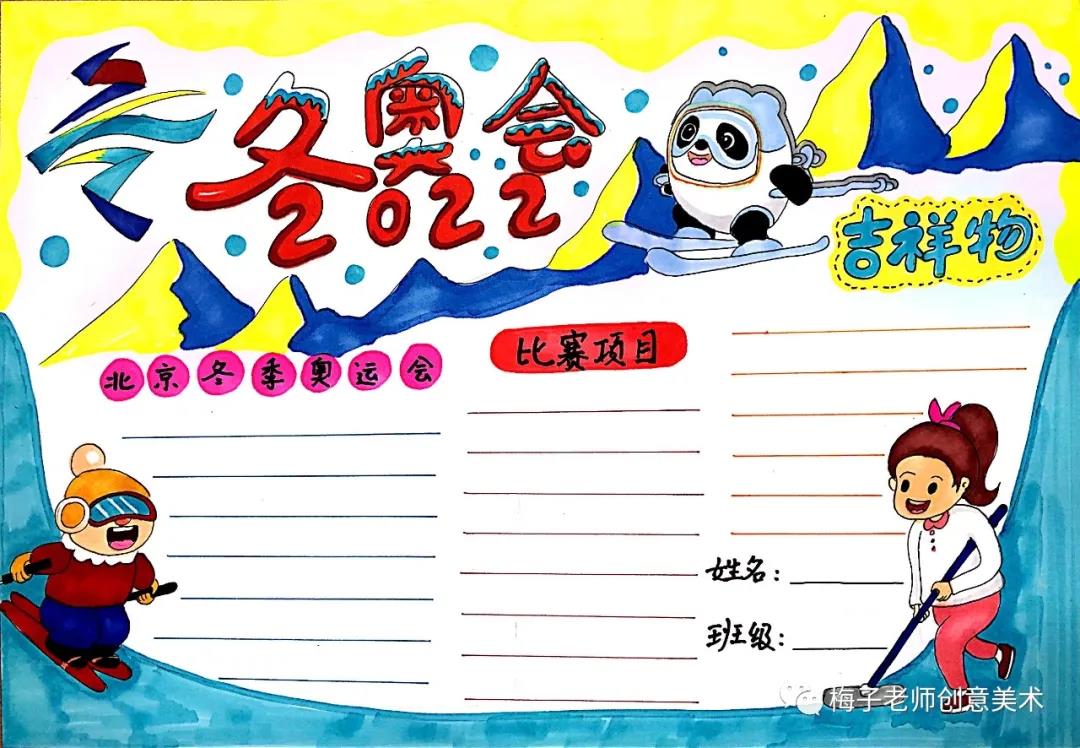 冬奥会
2022
吉祥物
北京冬季奥运会
比赛项目
姓名:
班级:
梅子老师创意美术